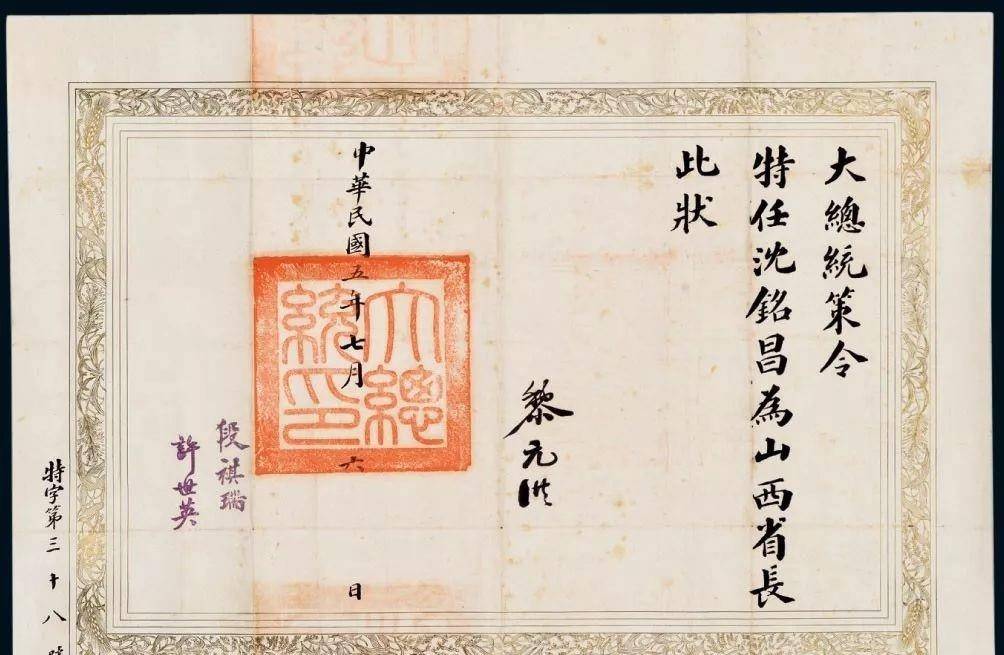 大總統策令
特任沈銘昌為山西省長
此狀
黎元洪
中華民國五年七月六日
大總統印
段祺瑞
許世英
特字第三十八號